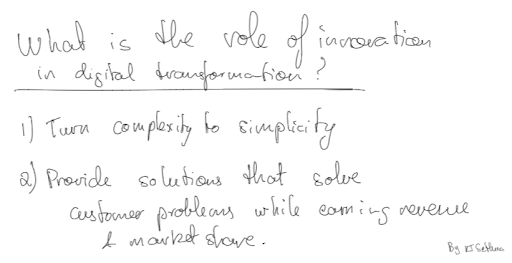 What is the role of innovation
in digital transformation ?
1) Turn complexity to simplicity
2) Provide solutions that solve
customer problems while earning revenue
& market share.
By